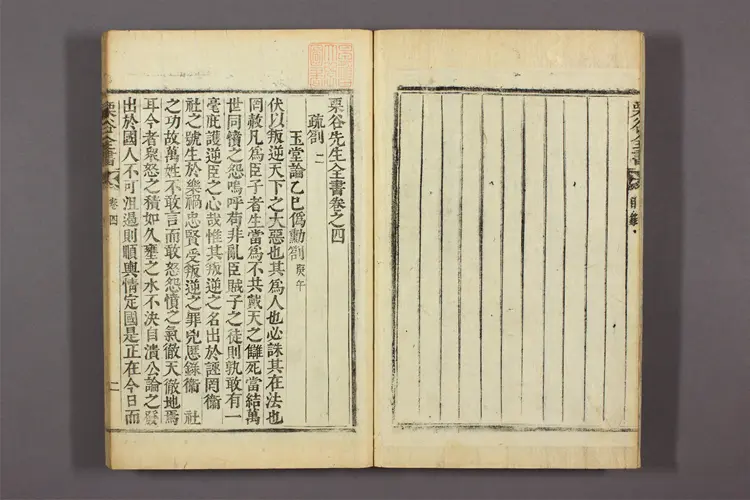 栗谷全書
栗谷先生全書卷之四
疏劄二
玉堂論乙巳僞勳劄 庚午
伏以叛逆天下之大惡也其爲人也必誅其在法也
罔赦凡爲臣子者生當爲不共戴天之讎死當結萬
世同憤之怨嗚呼苟非亂臣賊子之徒則孰敢有一
毫庇護逆臣之心哉惟其叛逆之名出於誣罔衞
社之號生於樂禍忠賢受叛逆之罪兇慝錄衞 社
之功故萬姓不敢言而敢怒怨憤之氣徹天徹地焉
耳今者衆怒之積如久壅之水不決自潰公論之發
出於國人不可沮遏則順輿情定國是正在今日而
栗谷全書 卷四 一